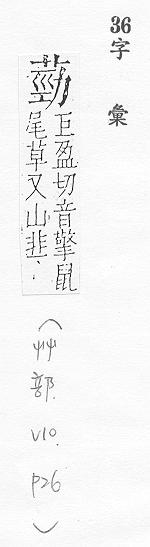 36
字彙
葝
巨盈切音擎鼠
尾草又山韭
(艸部.V10.P26)